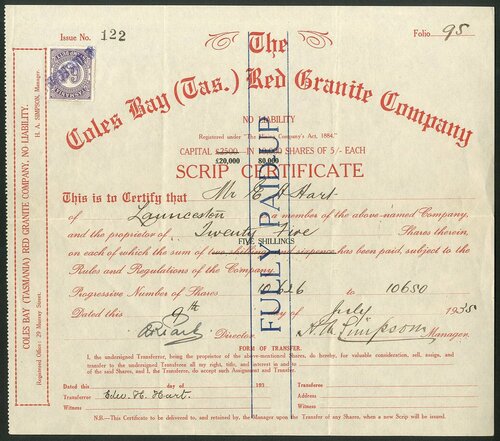 Issue No. 122
Folio 95
The
Coles Bay (Tas.) Red Granite Company
NO LIABILITY
Registered under "The Mining Company's Act, 1884."
CAPITAL £2500 IN SHARES OF 5/- EACH
£20,000 80,000
SCRIP CERTIFICATE
This is to Certify that Mr E H Hart
of Launceston a member of the above-named Company,
and the proprietor of Twenty Five Shares therein,
FIVE SHILLINGS
on each of which the sum of two shillings and sixpence has been paid, subject to the
Rules and Regulations of the Company.
Progressive Number of Shares 10626 to 10650
Dated this 9th day of July 1935
Director H. A. Simpson Manager.
FULLY PAID UP
FORM OF TRANSFER.
I, the undersigned Transferor, being the proprietor of the above-mentioned Shares, do hereby, for valuable consideration, sell, assign, and
transfer to the undersigned Transferee all my right, title, and interest in and to
of the said Shares, and I, the Transferee, do accept such Assignment and Transfer.
Dated this day of 193
Transferor Edw. H. Hart.
Witness
Transferee
Address
Witness
N.B.—This Certificate to be delivered to, and retained by, the Manager upon the Transfer of any Shares, when a new Scrip will be issued.
COLES BAY (TASMANIA) RED GRANITE COMPANY, NO LIABILITY.
H. A. SIMPSON, Manager.
Registered Office: 29 Murray Street.